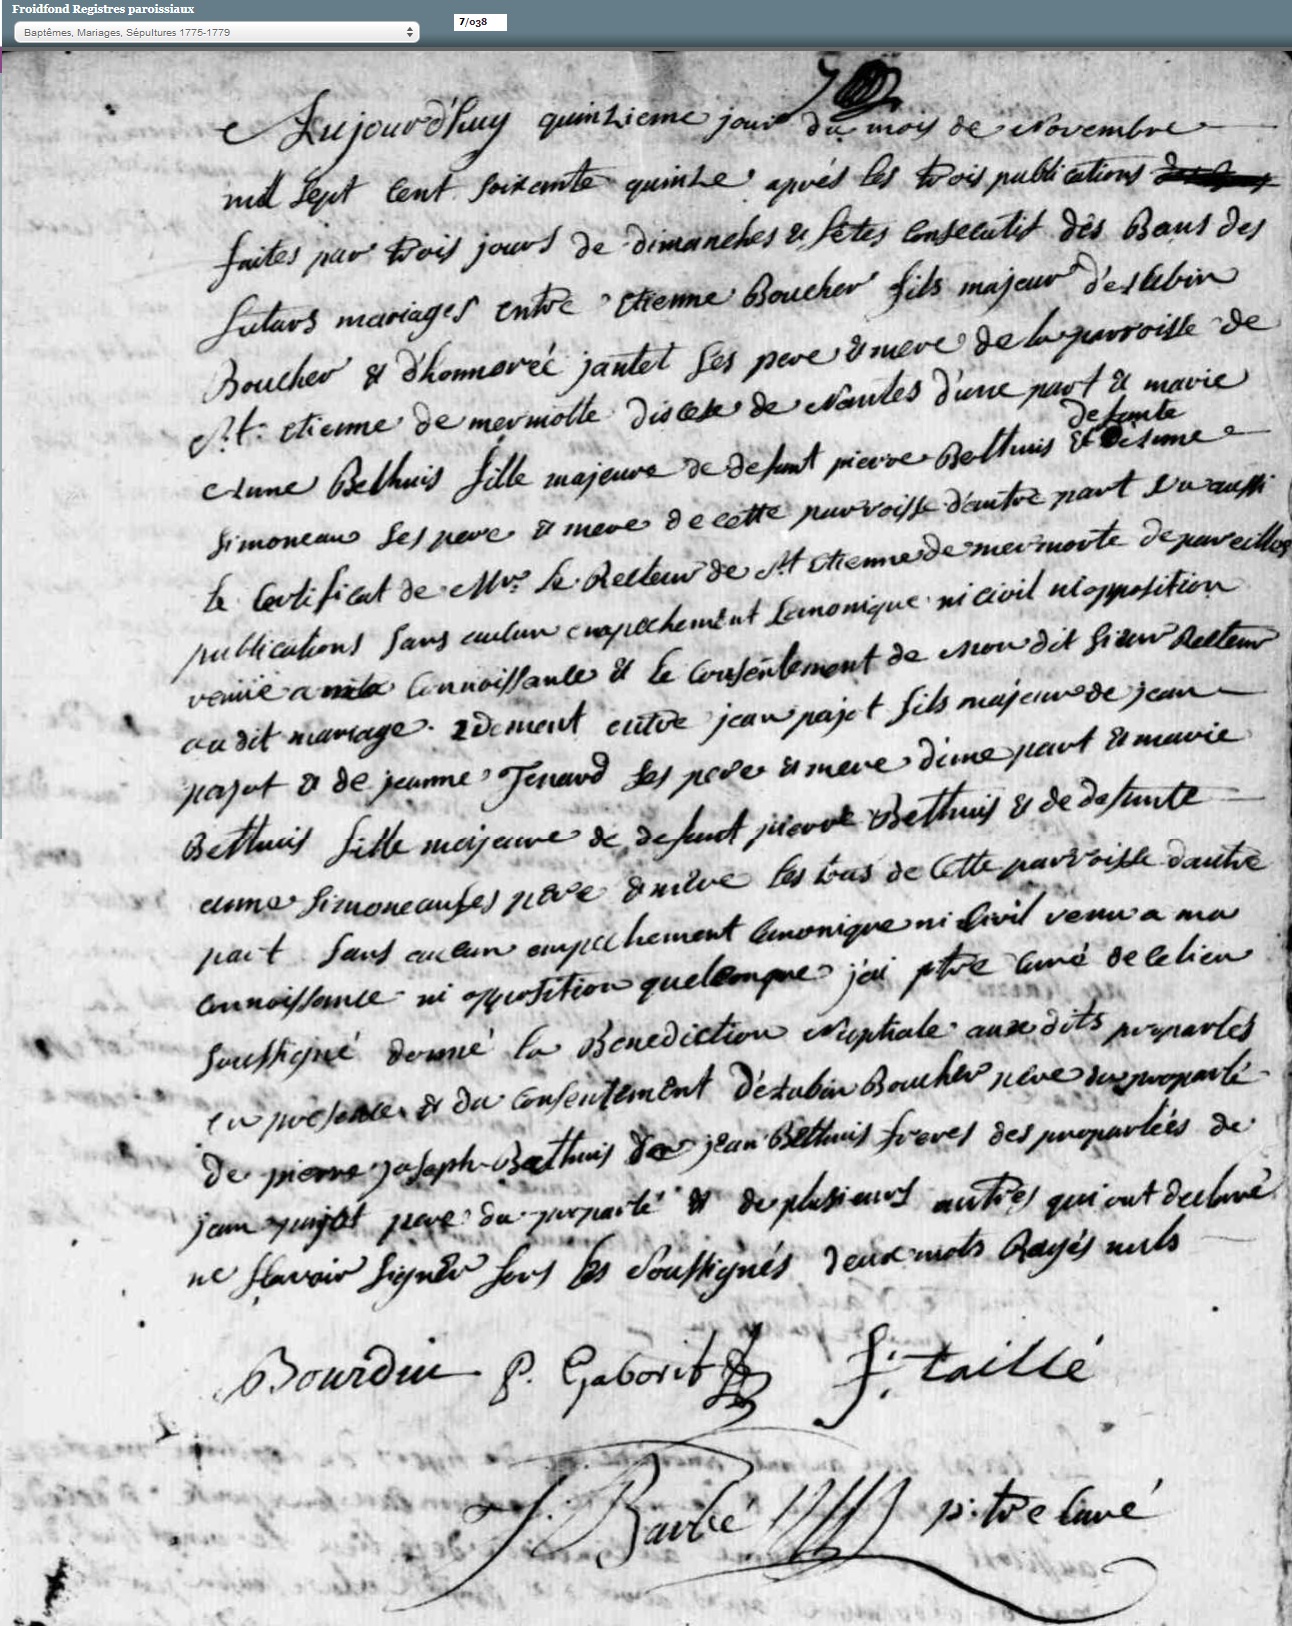 Froidfond Registres paroissiaux
Baptêmes, Mariages, Sépultures 1775-1779
7/038
7
Aujourd'huy quinzieme jour du mois de Novembre
mil sept cent soixante quinze après les trois publications
faites par trois jours de dimanches & fetes consecutifs des Bans des
futurs mariages entre etienne Boucher fils majeur d'estubin
Boucher & d'honnoreé jantet ses pere & mere de la parroisse de
St. etienne de mermolte diocese de Nantes d'une part & marie
defunte
anne Bethuis fille majeure de defunt pierre Bethuis & desune
simoneau ses pere & mere de cette parroisse d'autre part Vu aussi
le Certificat de Mr. le Recteur de St etienne de mermorte de pareilles
publications sans aucun empechement Canonique ni civil ni opposition
venüe a ma Connoissance & le Consentement de Mon dit sieur Recteur
au dit mariage. idement entre jean pajot fils majeur de jean
pajot & de jeanne Jenard ses pere & mere d'une part & marie
Bethuis fille majeure de defunt pierre Bethuis & de defunte
anne simoneau ses pere & mere les tous de Cette parroisse d'autre
part sans aucun empechement Canonique ni Civil venu a ma
Connoissance ni opposition quelconque j'ai ptre Curé de ce lieu
soussigné donné la Benediction Nuptiale aux dits proparlés
en presence & du consentement d'estubin Boucher pere du proparlé
de pierre joseph Bethuis de jean Bethuis freres des proparlées de
jean pajot pere du proparlé & de plusieurs autres qui ont declaré
ne sçavoir signer fors les soussignés deux mots Rayés nuls
Bourdin P. Gaborit f: taillé
J. Barbé p: tre Curé